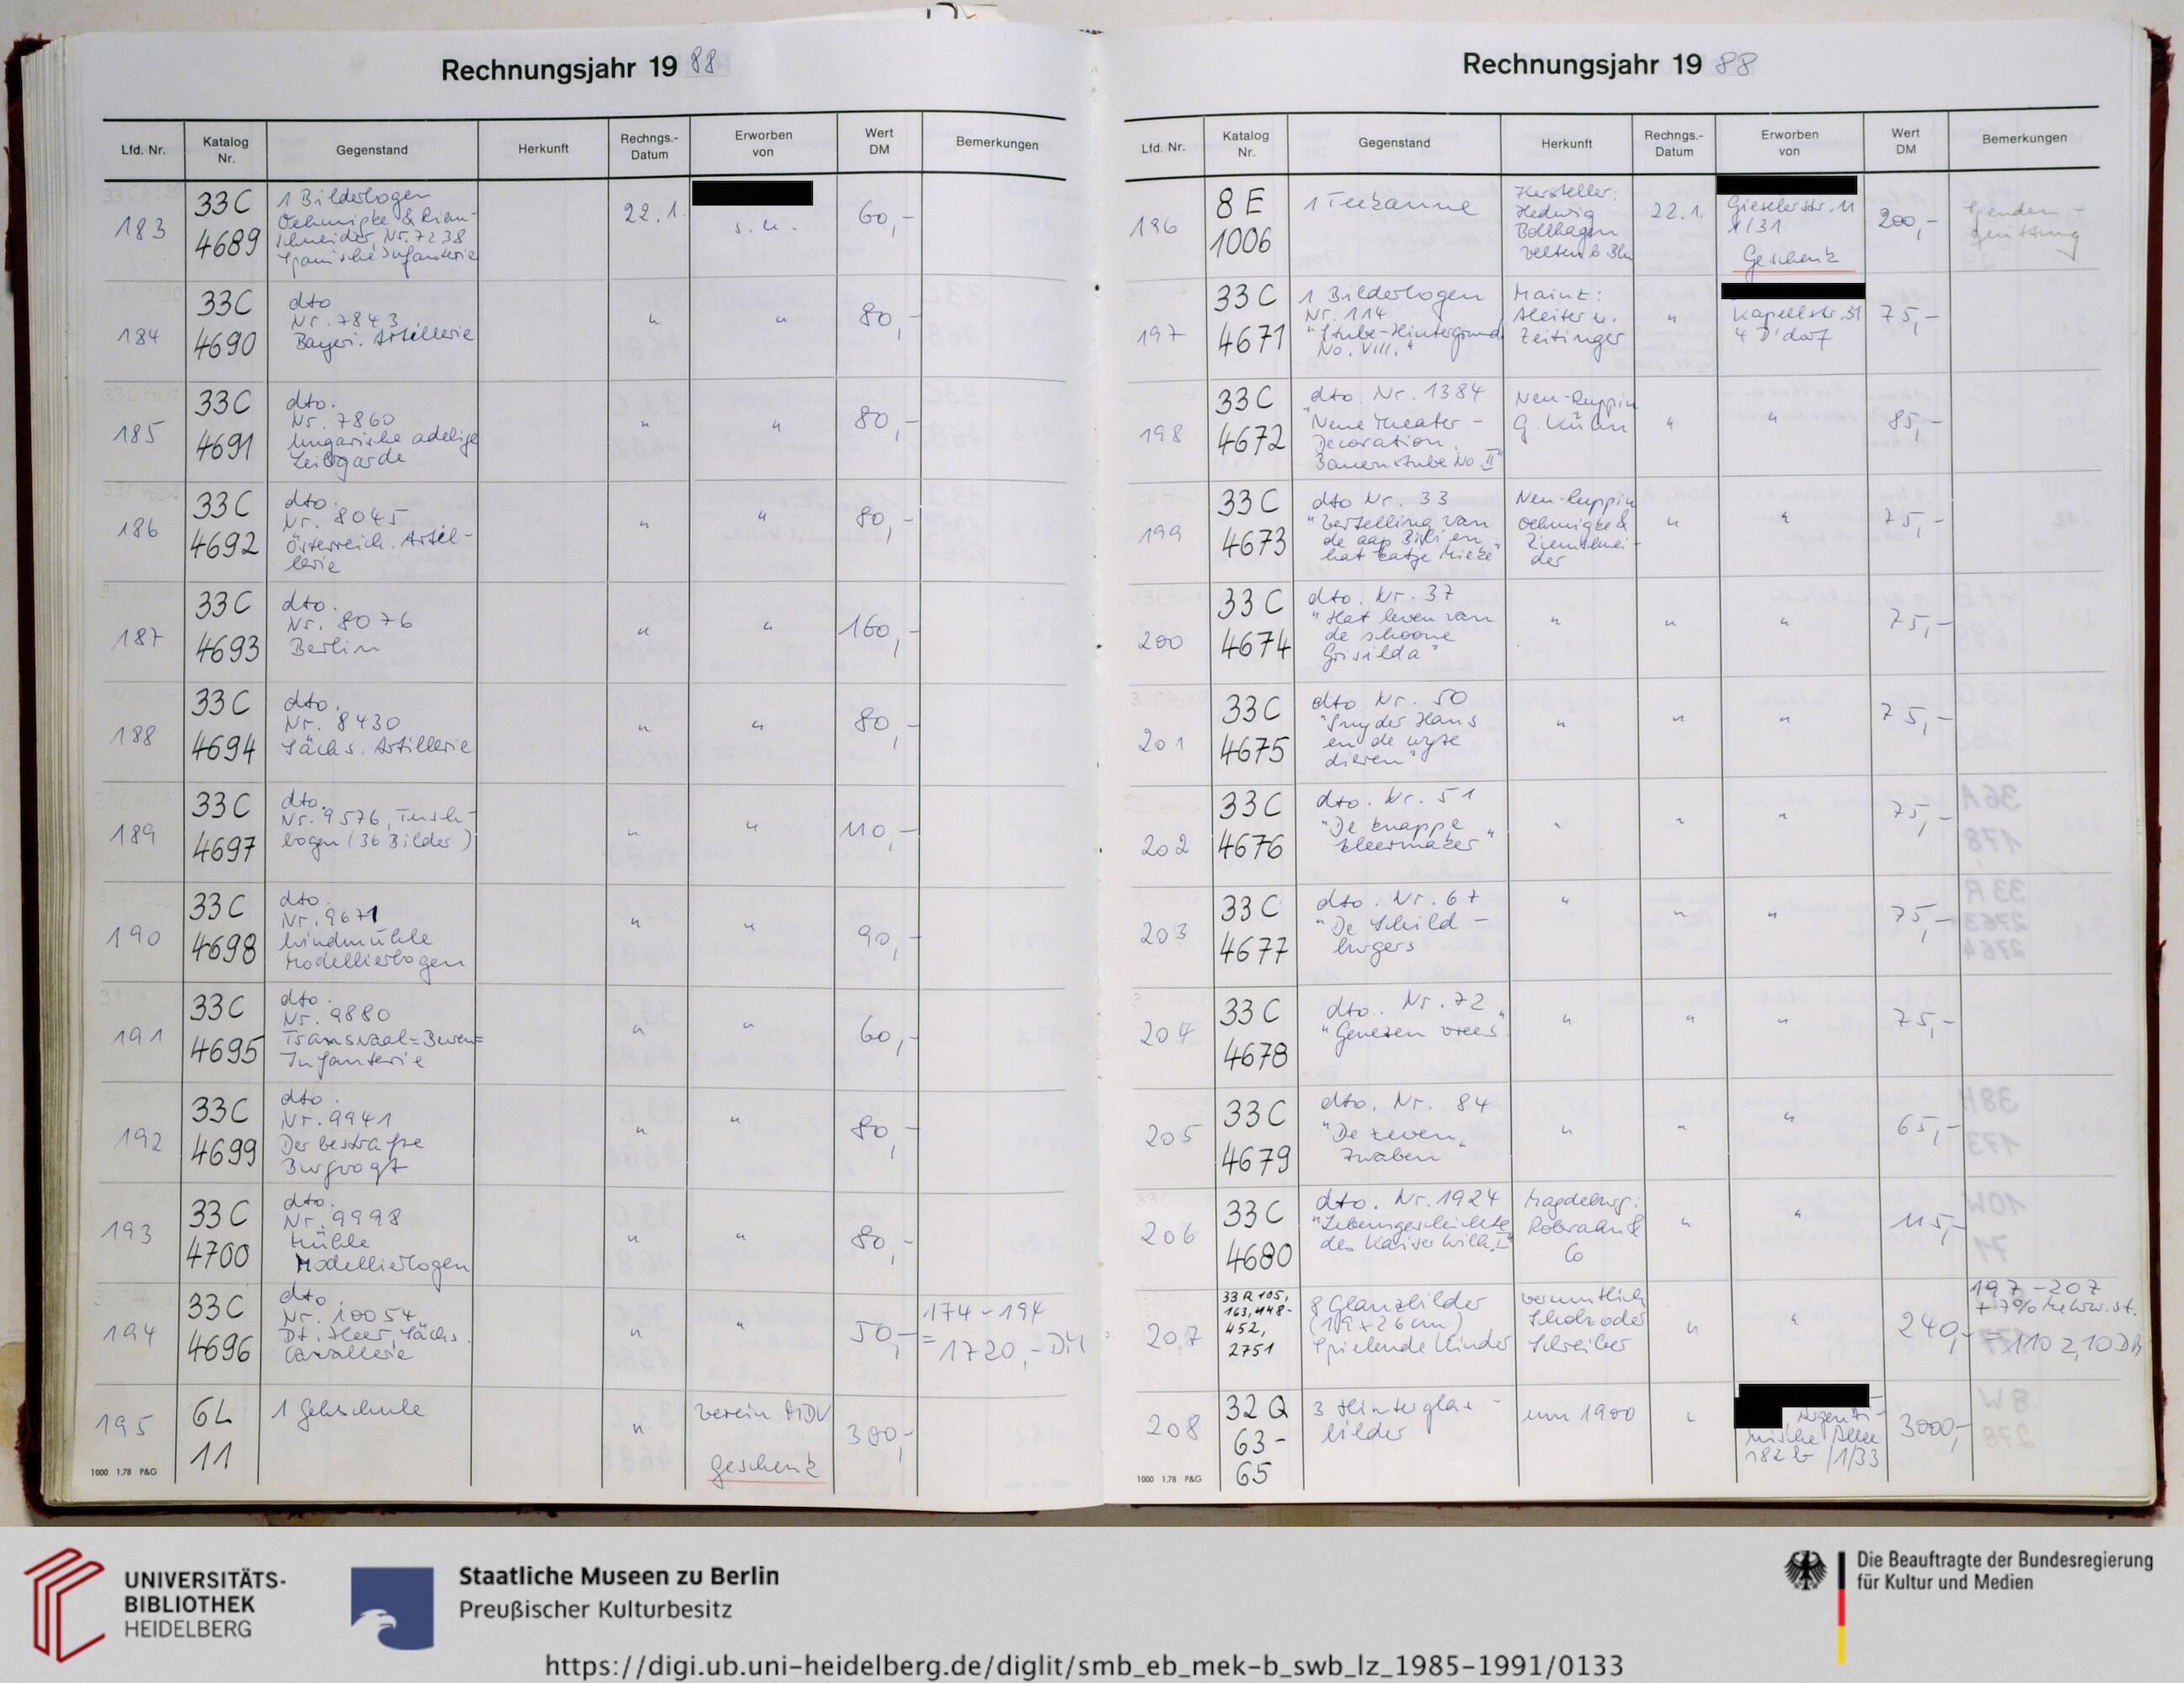 Rechnungsjahr 19 88
Lfd. Nr.
Katalog
Nr.
Gegenstand
Herkunft
Rechngs.-
Datum
Erworben
von
Wert
DM
Bemerkungen
183
33C
4689
1 Bilderbogen
Oehmigke & Riem-
schneider, Nr. 7238
Spanische Infanterie
22.1.
s.u.
60,-
184
33C
4690
dto
Nr. 7843
Bayeri. Artillerie
"
"
80,-
185
33C
4691
dto.
Nr. 7860
Ungarische adelige
Leibgarde
"
"
80,-
186
33C
4692
dto.
Nr. 8045
Österreich. Artil-
lerie
"
"
80,-
187
33C
4693
dto.
Nr. 8076
Berlin
"
"
160,-
188
33C
4694
dto.
Nr. 8430
Sächs. Artillerie
"
"
80,-
189
33C
4697
dto.
Nr. 9576, Tusch-
bogen (36 Bilder)
"
"
110,-
190
33C
4698
dto.
Nr. 9671
Windmühle
Modellierbogen
"
"
90,-
191
33C
4695
dto.
Nr. 9880
Transvaal=Buren=
Infanterie
"
"
60,-
192
33C
4699
dto.
Nr. 9941
Der bestrafte
Burgvogt
"
"
80,-
193
33C
4700
dto.
Nr. 9998
Mühle
Modellierbogen
"
"
80,-
194
33C
4696
dto.
Nr. 10054
Dt. Heer, Sächs.
Cavallerie
"
"
50,-
174-194
= 1720,- DM
195
6L
11
1 Gehschule
"
Verein
Geschenk
300,-
1000 1.78 P&G
Rechnungsjahr 19 88
Lfd. Nr.
Katalog
Nr.
Gegenstand
Herkunft
Rechngs.-
Datum
Erworben
von
Wert
DM
Bemerkungen
196
8E
1006
1 Teekanne
Hersteller:
Hedwig
Bollhagen
Velten b. Bln
22.1.
Gieselerstr. 11
1/31
Geschenk
200,-
Spenden-
quittung
197
33C
4671
1 Bilderbogen
Nr. 114
"Stube-Hintergrund
No. VIII."
Mainz:
u.
Zeitinger
"
Kapellstr. 31
4 D'dorf
75,-
198
33C
4672
dto. Nr. 1384
"Neue Theater-
Decoration,
Bauernstube No. II"
Neu-Ruppin
G. Kühn
"
"
85,-
199
33C
4673
dto Nr. 33
"Vertelling van
de aap en
hat katje Mieke"
Neu-Ruppin
Oehmigke &
Riemschnei-
der
"
"
75,-
200
33C
4674
dto. Nr. 37
"Hat leven van
de schoone
Grisilda"
"
"
"
75,-
201
33C
4675
dto Nr. 50
"Snyder Hans
en de
dieren"
"
"
"
75,-
202
33C
4676
dto. Nr. 51
"De knappe
kleermaker"
"
"
"
75,-
203
33C
4677
dto. Nr. 67
"De Schild-
burgers
"
"
"
75,-
204
33C
4678
dto. Nr. 72
"Genezen vrees"
"
"
"
75,-
205
33C
4679
dto. Nr. 84
"De zeven
Zwaben"
"
"
"
65,-
206
33C
4680
dto. Nr. 1924
"Lebensgeschichte
des Kaiser Wilh. I"
Magdeburg:
Robrahn &
Co
"
"
115,-
207
33 R 105,
163, 448-
452,
2751
8 Glanzbilder
(19 x 26 cm)
Spielende Kinder
vermutlich
Scholz oder
Schreiber
"
"
240,-
197-207
+ 7% Mehrw.st.
= 1102,10 DM
208
32Q
63-
65
3 Hinterglas-
bilder
um 1900
"
Argenti-
nische Allee
182 b /1/33
3000,-
1000 1.78 P&G
UNIVERSITÄTS-
BIBLIOTHEK
HEIDELBERG
Staatliche Museen zu Berlin
Preußischer Kulturbesitz
Die Beauftragte der Bundesregierung
für Kultur und Medien
https://digi.ub.uni-heidelberg.de/diglit/smb_eb_mek-b_swb_lz_1985-1991/0133